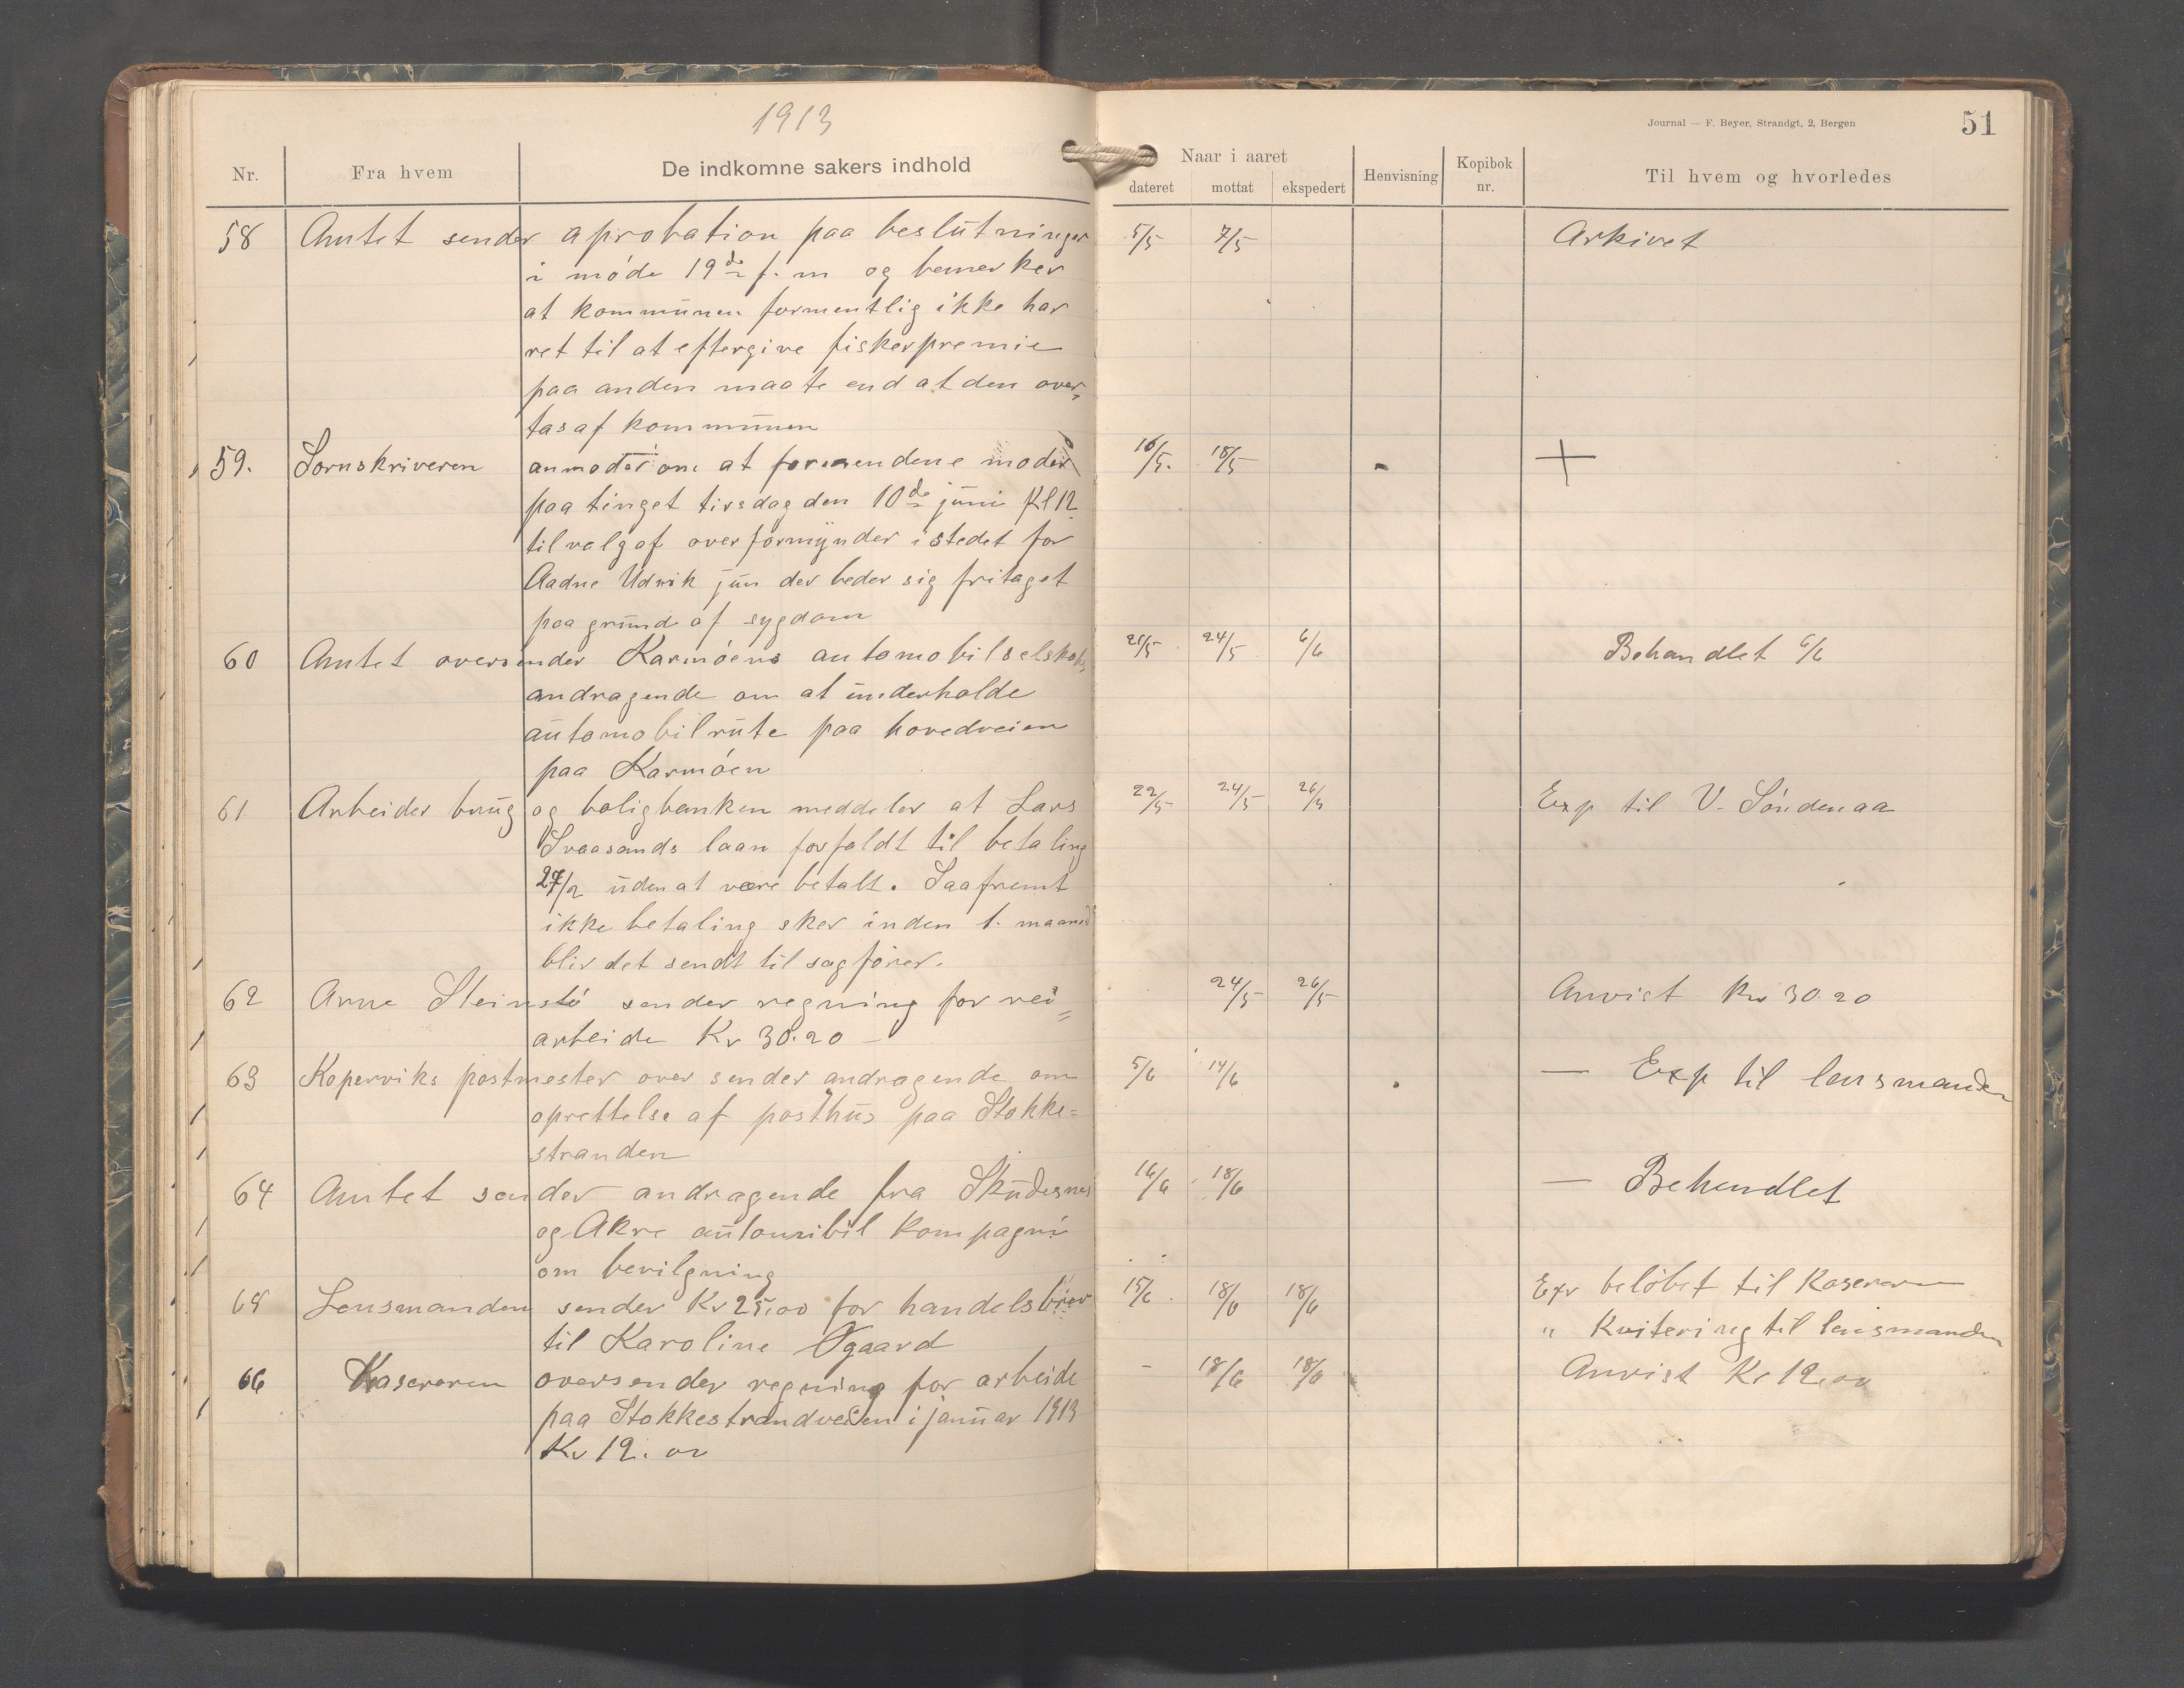 1913
Journal — F. Beyer, Strandgt. 2, Bergen
51
Nr. Fra hvem De indkomne sakers indhold Naar i aaret dateret mottat ekspedert Henvisning Kopibok nr. Til hvem og hvorledes
58 Amtet sender aprobation paa beslutninger 5/5 7/5 Arkivet
i møde 19de f. m og bemerker
at kommunen formentlig ikke har
ret til at eftergive fiskerpremie
paa anden maate end at den over-
tas af kommunen
59. Sornskriveren anmoder om at formendene møder 16/5. 18/5 +
paa tinget tirsdag den 10de juni Kl 12
til valg af overformynder istedet for
Aadne Udvik jun der beder sig fritaget
paa grund af sygdom
60 Amtet oversender Karmøens automobilselskabs 21/5 24/5 6/6 Behandlet 6/6
andragende om at underholde
automobilrute paa hovedveien
paa Karmøen
61 Arbeider brug og boligbanken meddeler at Lars 22/5 24/5 26/5 Exp til V. Søndenaa
Svaasands laan forfaldt til betaling
27/2 uden at være betalt. Saafremt
ikke betaling sker inden 1. maaned
blir det sendt til sagfører.
62 Arne Steinstø sender regning for vei= 24/5 26/5 Anvist Kr 30.20
arbeide Kr 30.20
63 Koperviks postmester over sender andragende om 5/6 14/6 — Exp til lensmanden
oprettelse af posthus paa Stokke=
stranden
64 Amtet sender andragende fra Skudesnes 16/6 18/6 — Behandlet
og Akre automibil kompagni
om bevilgning
65 Lensmanden sender Kr 25,00 for handelsbrev 15/6. 18/6 18/6 Exp beløbet til Kasereren
til Karoline Øgaard " Kvitering til lensmanden
66 Kasereren oversender regning for arbeide - 18/6 18/6 Anvist Kr 12,00
paa Stokkestrandveien i januar 1913
Kr 12.00